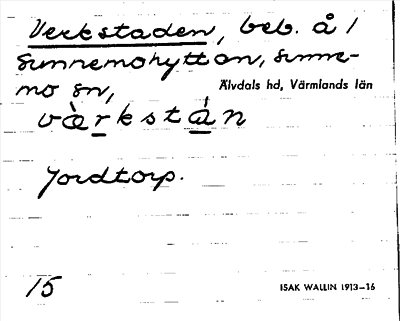 Verkstaden, beb. å 1
Sunnemohyttan, Sunne-
mo sn, Älvdals hd, Värmlands län
và̀rkstá̀n
Jordtorp.
15
ISAK WALLIN 1913–16